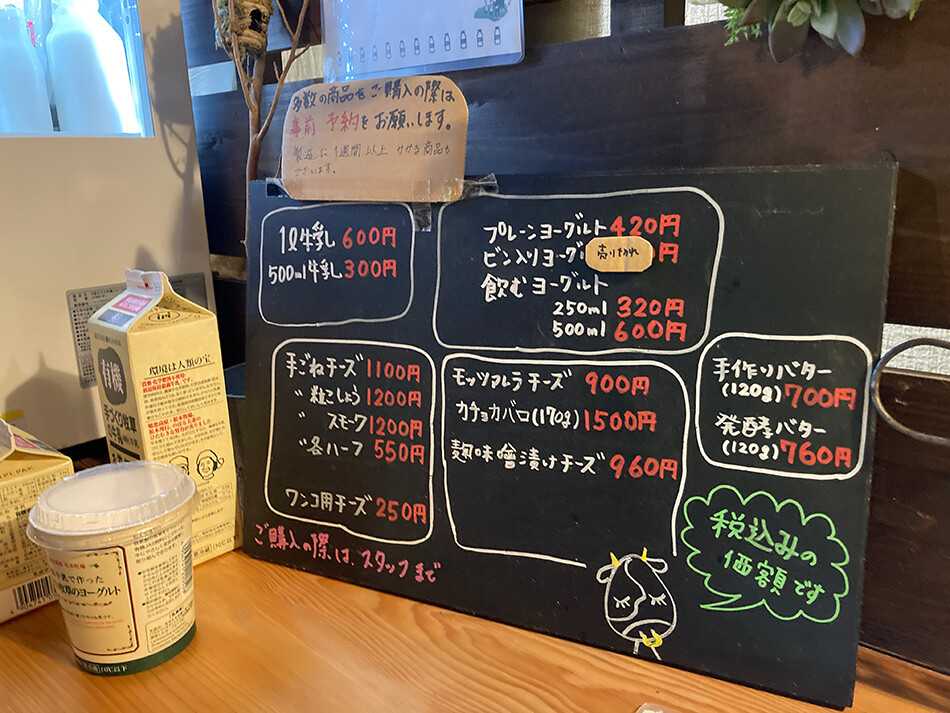 多数の商品をご購入の際は
事前予約をお願いします。
製造に1週間以上かかる商品も
ございます。
1ℓ牛乳 600円
500ml牛乳 300円
プレーンヨーグルト 420円
ビン入りヨーグ 売りきれ 円
飲むヨーグルト
250ml 320円
500ml 600円
手ごねチーズ 1100円
〃 粒こしょう 1200円
〃 スモーク 1200円
〃 各ハーフ 550円
ワンコ用チーズ 250円
モッツァレラチーズ 900円
カチョカバロ(170g) 1500円
麹味噌漬けチーズ 960円
手作りバター
(120g) 700円
発酵バター
(120g) 760円
税込みの
価額です
ご購入の際は、スタッフまで
環境は人類の宝
有機
手づくり牧草
乳で作った
のヨーグルト
10℃以下